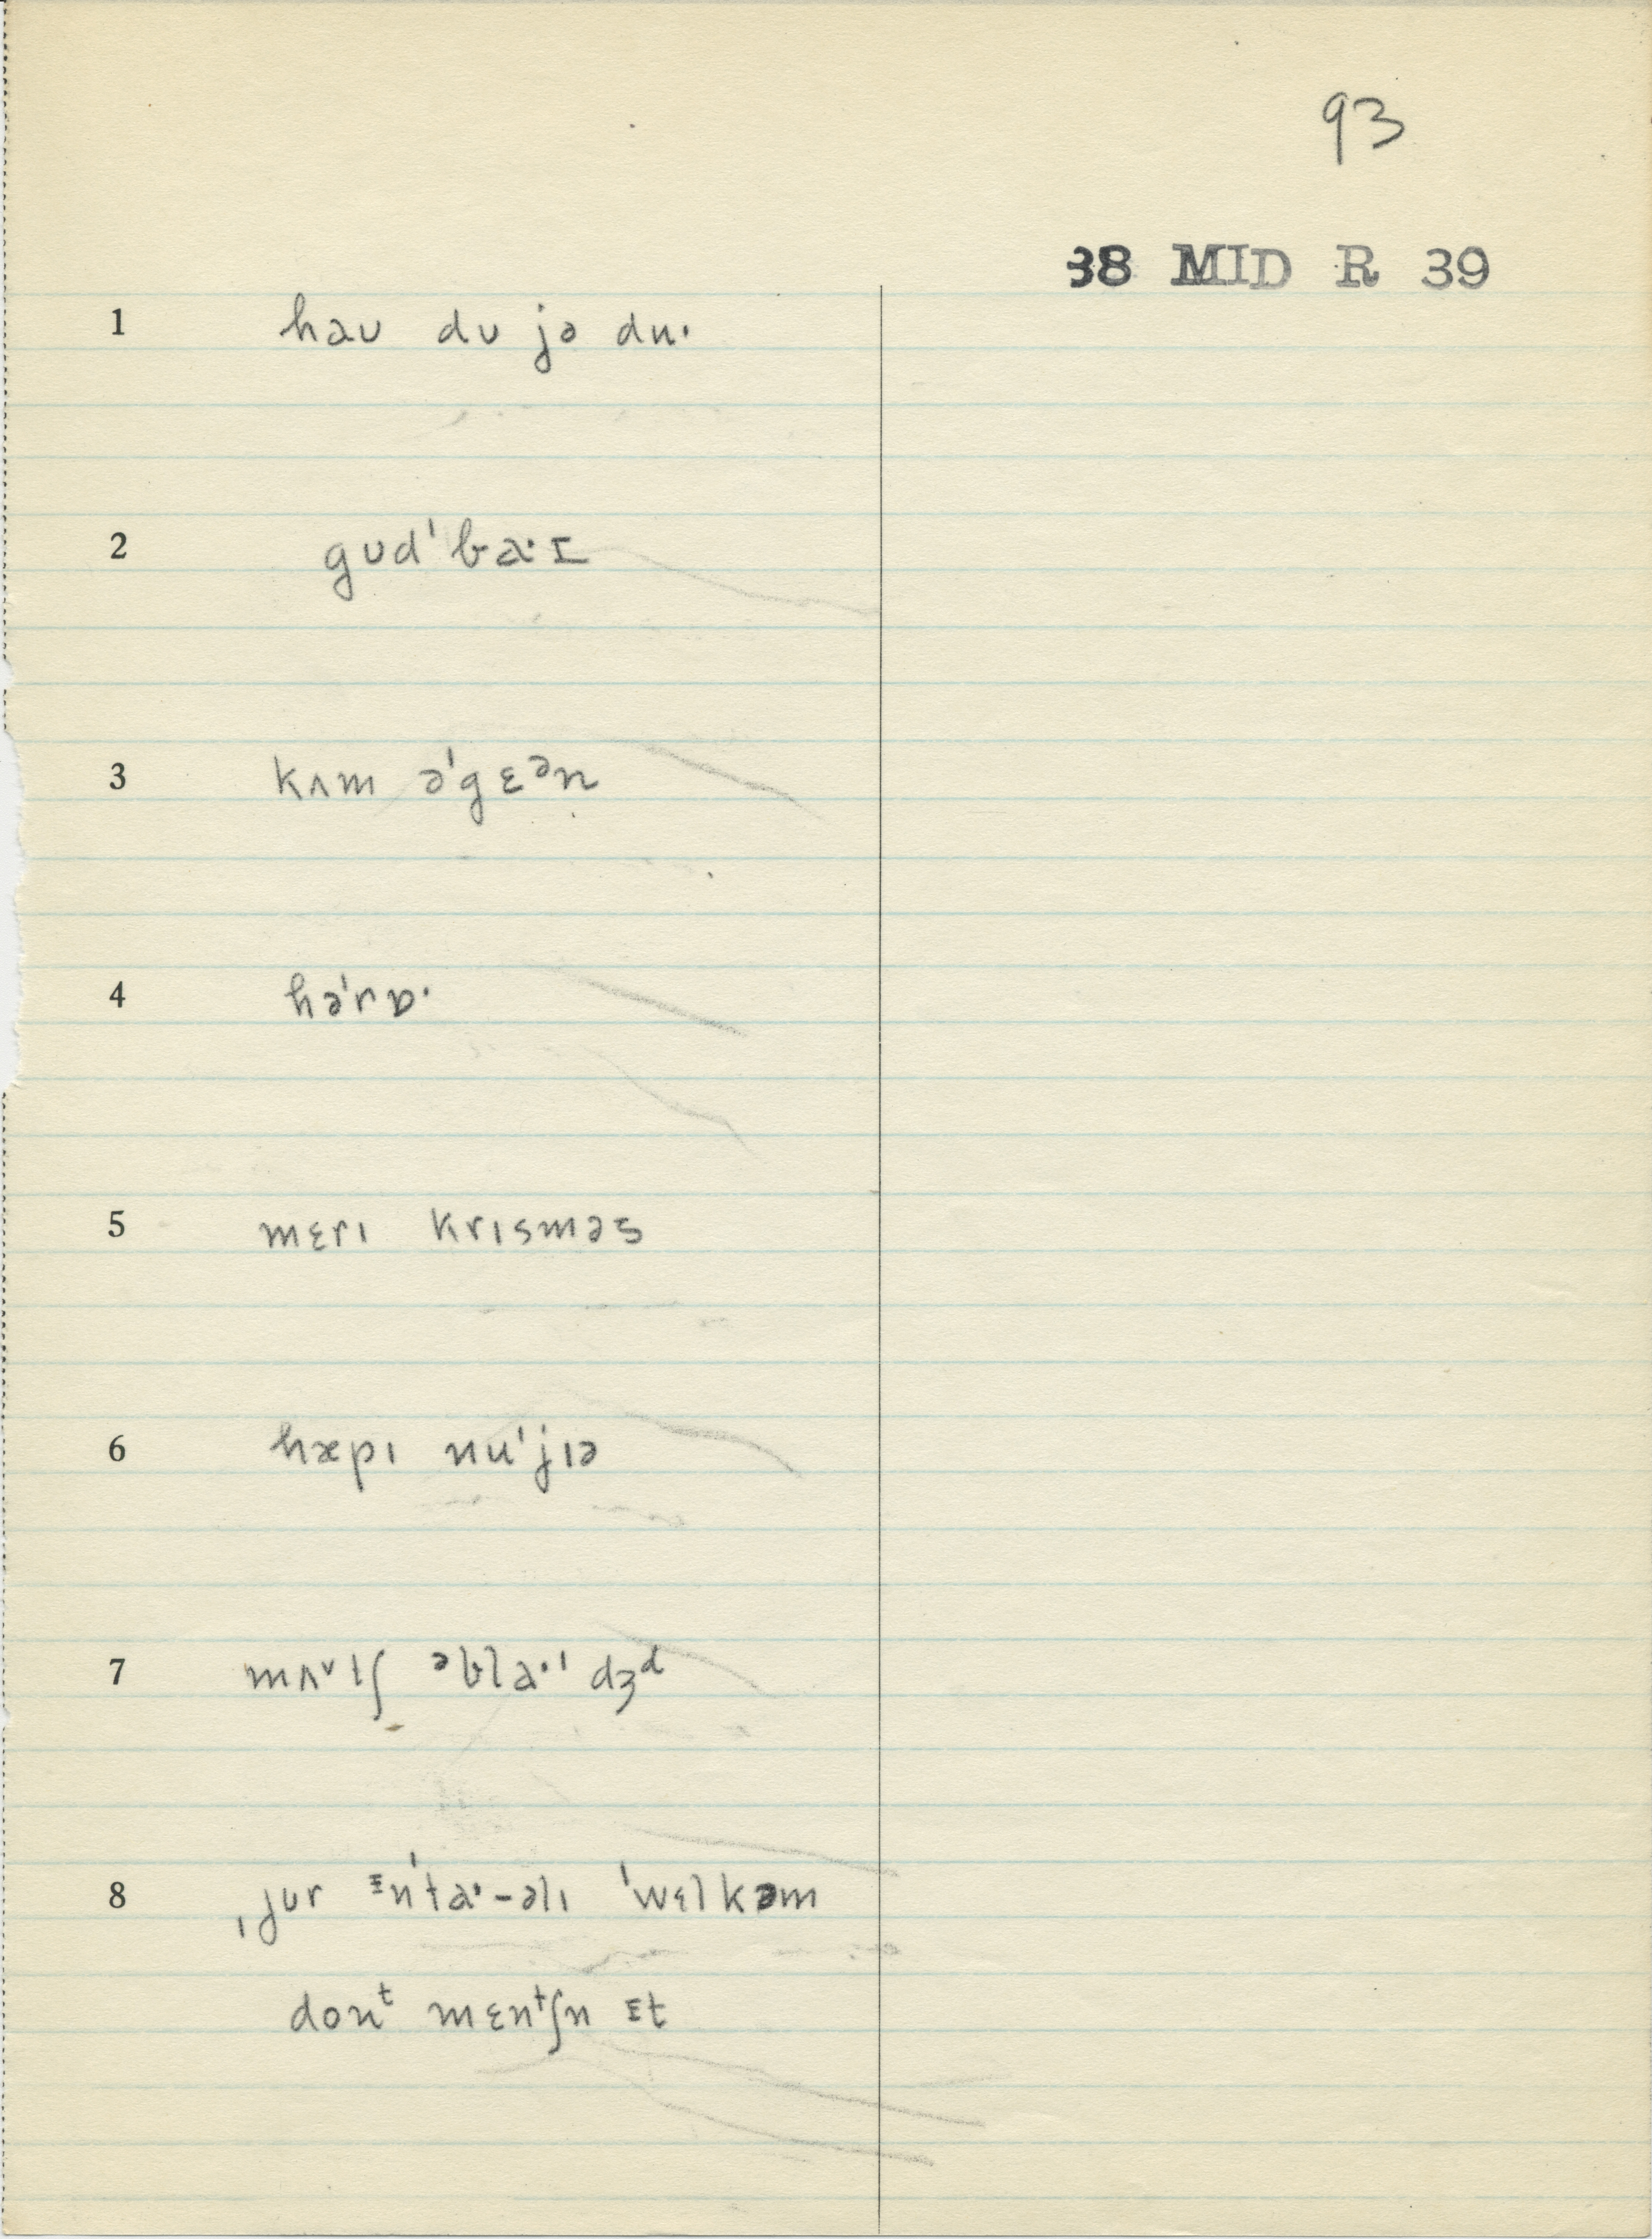 93
38 MID R 39
1 haʊ dʊ jə du·
2 gʊdˈbɑ·ɪ
3 kʌm əˈgɛᵊn
4 həˈrɒ·
5 mɛrɪ krɪsməs
6 hæpɪ nuˈjɪə
7 mʌᵛtʃ ᵊblaˑˈdʒᵈ
8 ˌjʊr ɪnˈtaˑ-əlɪ ˈwɛlkəm
donᵗ mɛnᵗʃn ɪt